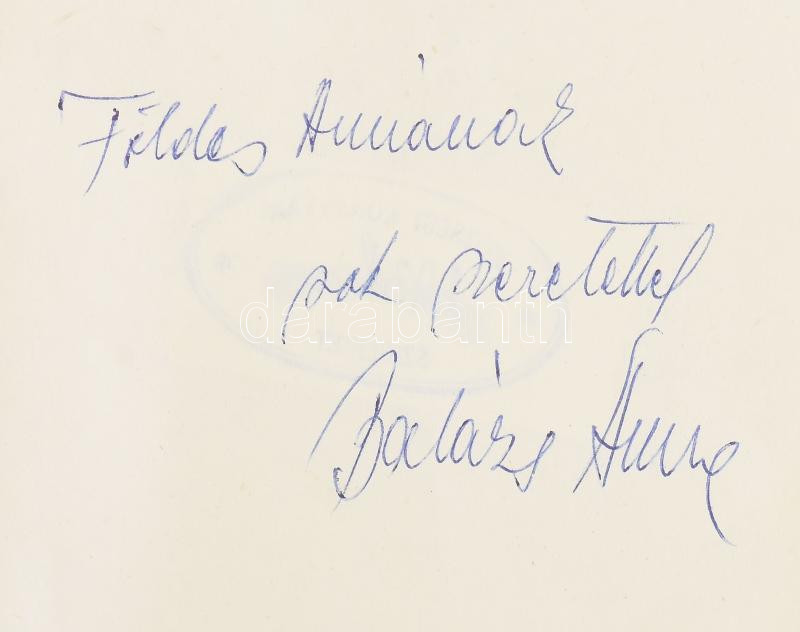 Földes Annának
sok szeretettel
darabanth
Balázs Anna